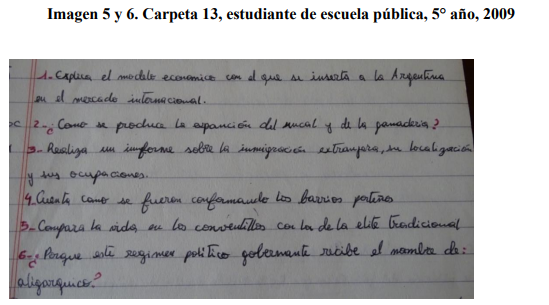 Imagen 5 y 6. Carpeta 13, estudiante de escuela pública, 5° año, 2009
1- Explica el modelo economico con el que se inserta a la Argentina
en el mercado internacional.
2- ¿Como se produce la expanción del rucal y de la ganaderia?
3- Realiza un informe sobre la inmigración extranjera, su localización
y sus ocupaciones.
4. Cuenta como se fueron conformando los barrios porteños
5- Compara la vida en los conventillos con la de la elite tradicional
6- ¿Porque este regimen politico gobernante recibe el nombre de:
oligarquico?